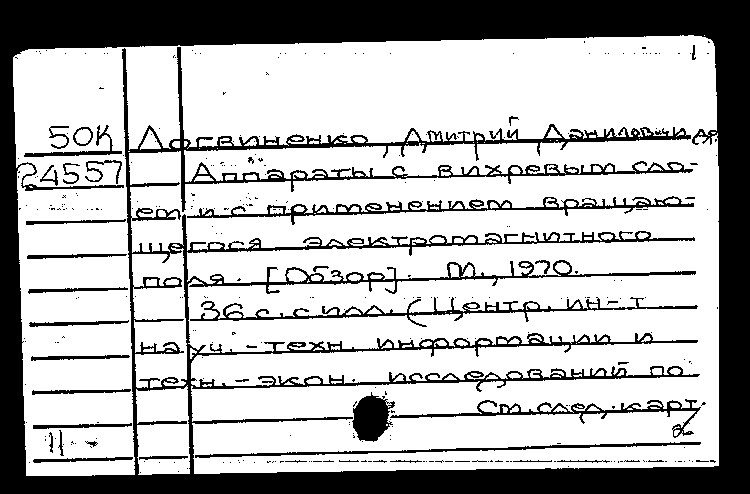 1
50К Логвиненко, Дмитрий Данилович и др.
24557 Аппараты с вихревым сло-
ем и с применением вращаю-
щегося электромагнитного
поля. [Обзор]. М., 1970.
36 с. с илл. (Центр. ин-т
науч.-техн. информации и
техн.-экон. исследований по
См. след. карт.
11